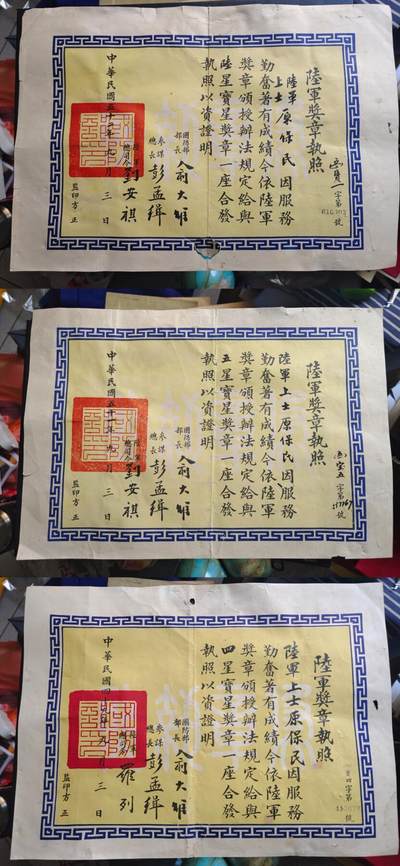 陸軍獎章執照
字第
號
陸軍上士原保民因服務
勤奮著有成績今依陸軍
獎章頒授辦法規定給與
陸星寶星獎章一座合發
執照以資證明
國防部部長 俞大維
參謀總長 彭孟緝
總司令 劉安祺
中華民國五十年月三日
監印方正
陸軍獎章執照
字第
號
陸軍上士原保民因服務
勤奮著有成績今依陸軍
獎章頒授辦法規定給與
五星寶星獎章一座合發
執照以資證明
國防部部長 俞大維
參謀總長 彭孟緝
總司令 劉安祺
中華民國五十年九月三日
監印方正
陸軍獎章執照
字第
號
陸軍上士原保民因服務
勤奮著有成績今依陸軍
獎章頒授辦法規定給與
四星寶星獎章一座合發
執照以資證明
國防部部長 俞大維
參謀總長 彭孟緝
羅列
中華民國四年九月三日
監印方正